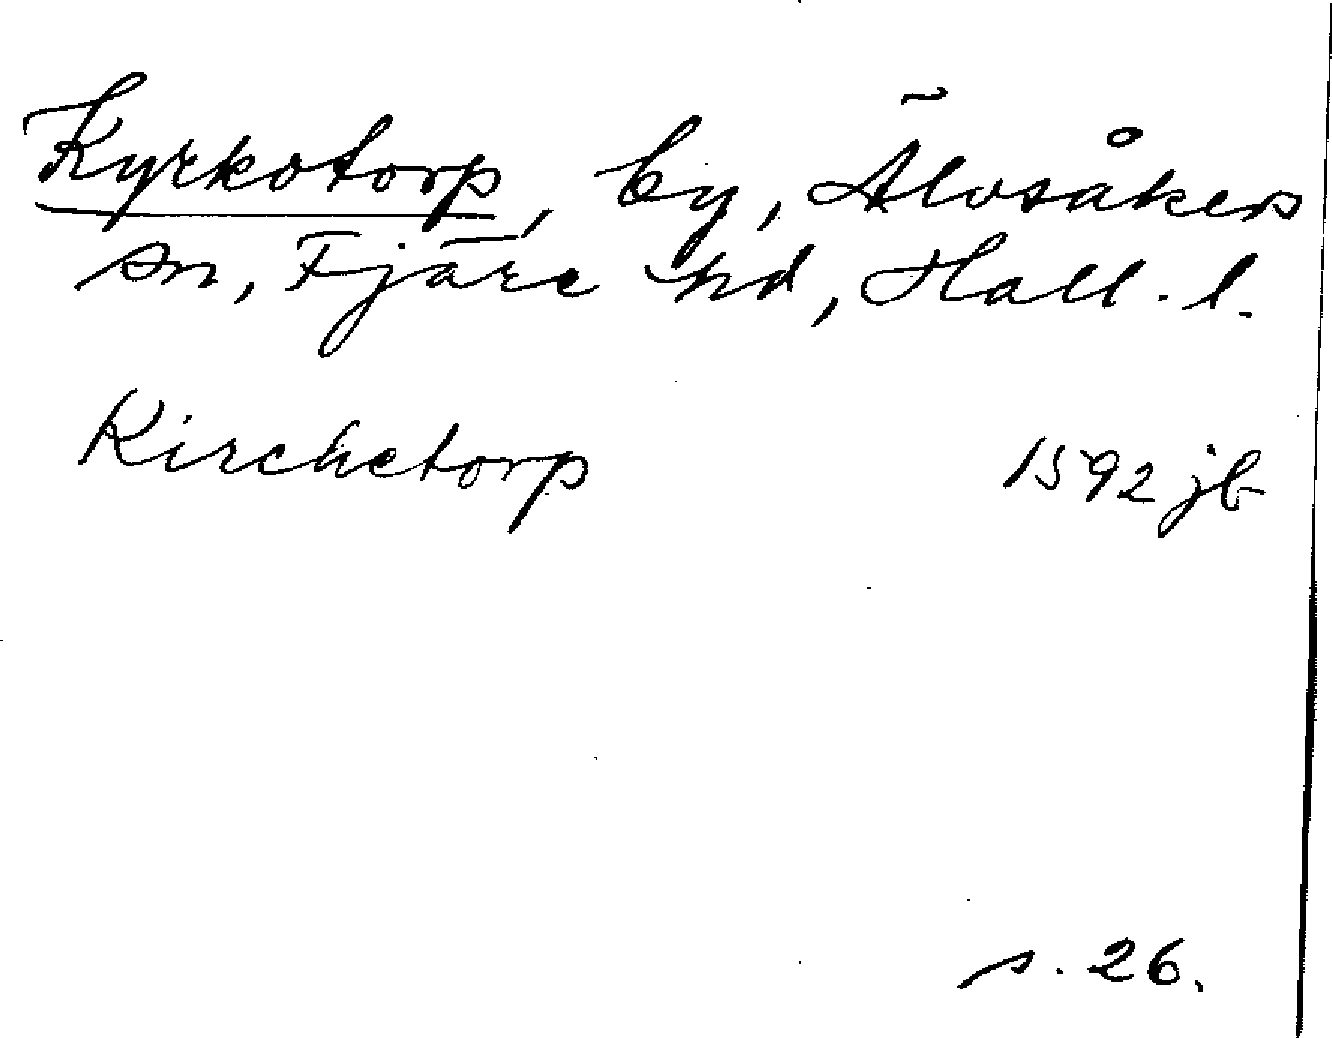 Kyrkotorp, by, Älvsåkers
sn, Fjäre hd, Hall. l.
Kirchetorp 1592 jb
s. 26.